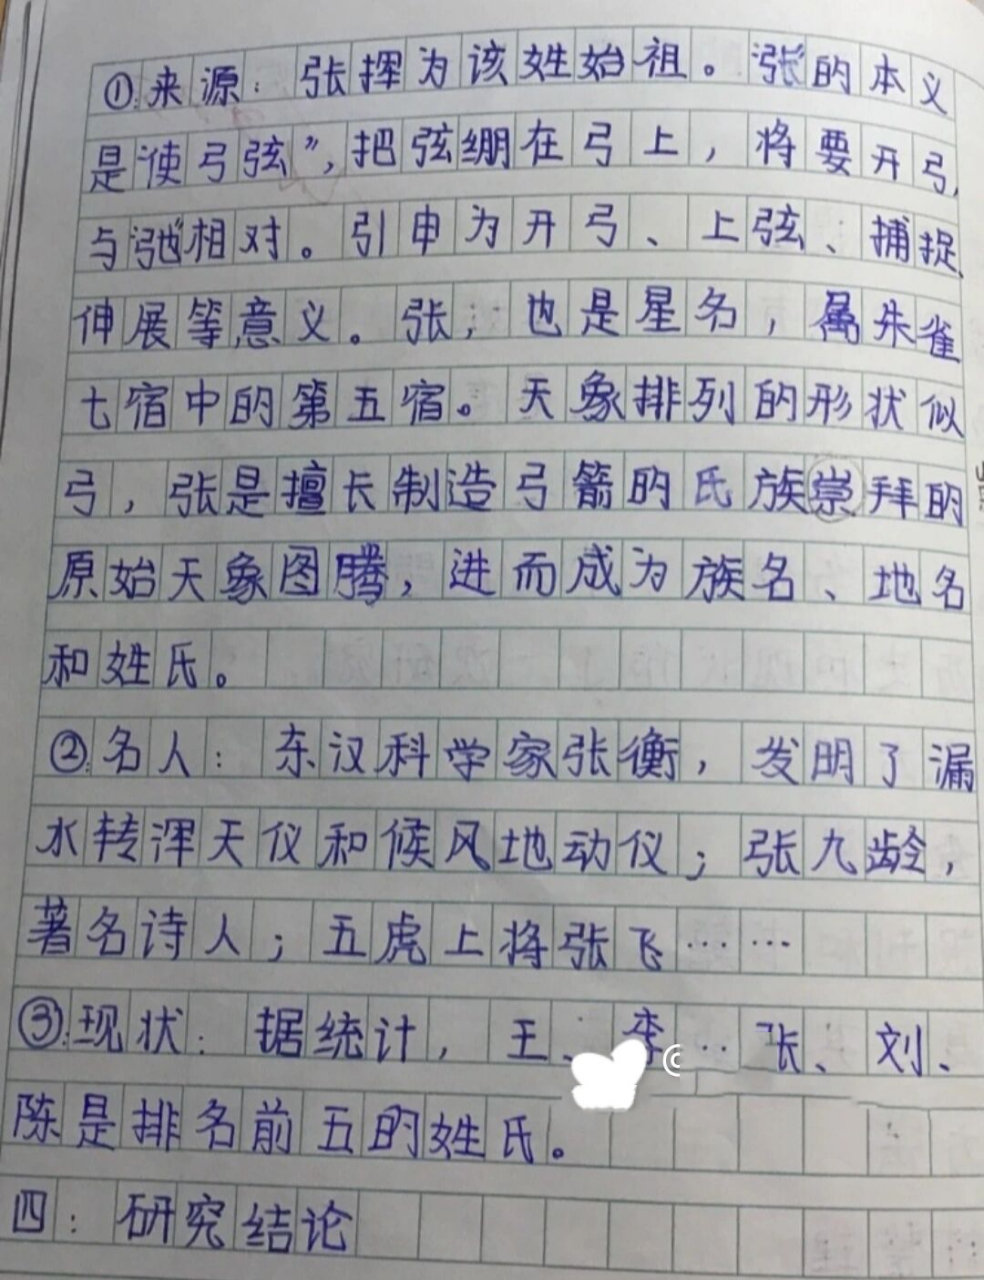 ①.来源：张挥为该姓始祖。张的本义
是“使弓弦”，把弦绷在弓上，将要开弓，
与“弛”相对。引申为开弓、上弦、捕捉、
伸展等意义。张，也是星名，属朱雀
七宿中的第五宿。天象排列的形状似
弓，张是擅长制造弓箭的氏族崇拜的
原始天象图腾，进而成为族名、地名
和姓氏。
②.名人：东汉科学家张衡，发明了漏
水转浑天仪和候风地动仪；张九龄，
著名诗人；五虎上将张飞……
③.现状：据统计，王、李、张、刘、
陈是排名前五的姓氏。
四：研究结论